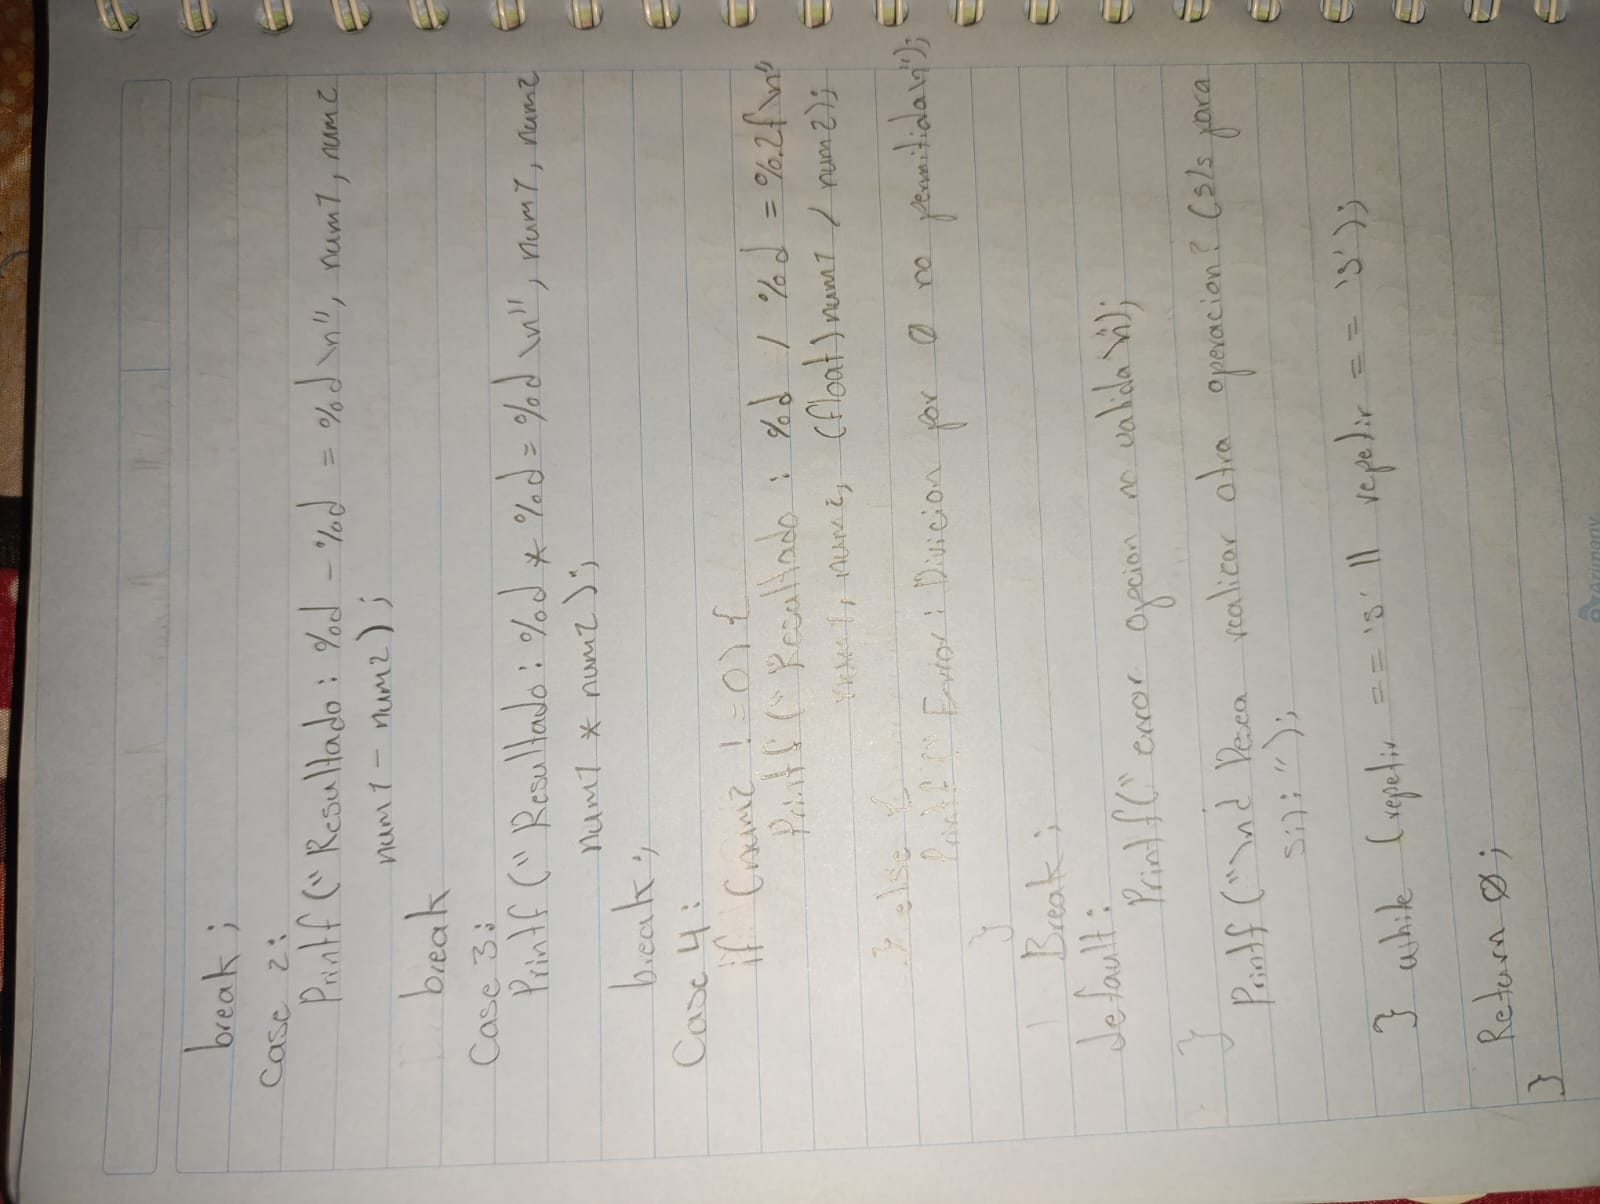 break;
Case 2:
Printf("Resultado: %d - %d = %d \n", num1, num2
num1 - num2);
break
Case 3:
Printf("Resultado: %d * %d = %d \n", num1, num2
num1 * num2);
break;
Case 4:
if (num2 != 0) {
Printf("Resultado: %d / %d = %.2f\n"
num1, num2, (float)num1 / num2);
} else {
Printf(" Error: Divicion por 0 no permitida\n");
}
Break;
default:
Printf("error opcion no valida\n");
}
Printf("\n¿ Desea realicar otra operacion? (s/s para
si):");
} while (repetir == 's' || repetir == 's');
Return 0;
}